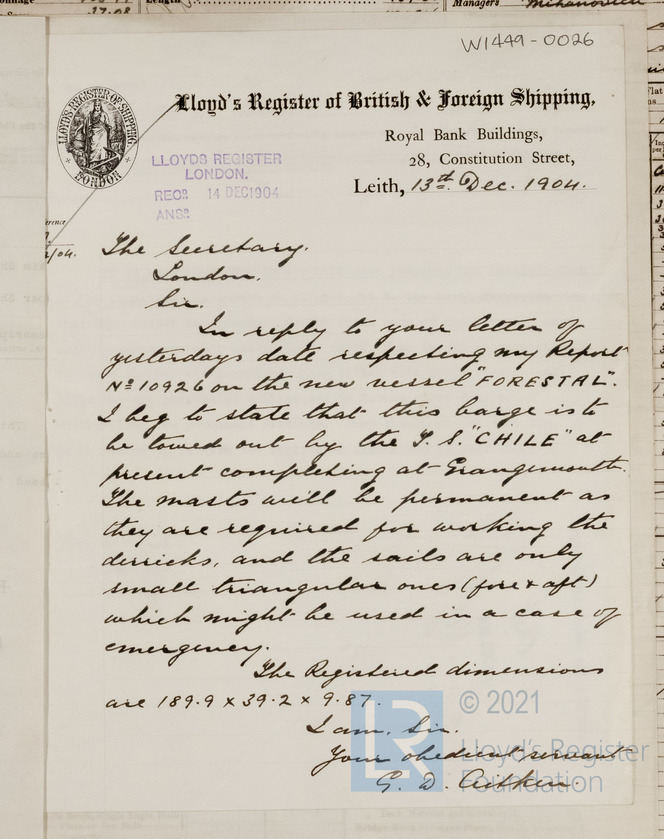 Length
Managers
37.08
W1449-0026
LLOYD'S REGISTER OF SHIPPING
LONDON
Lloyd's Register of British & Foreign Shipping,
Royal Bank Buildings,
28, Constitution Street,
Leith, 13th Dec. 1904.
LLOYDS REGISTER
LONDON.
REC^D. 14 DEC 1904
ANS^D.
The Secretary.
London.
Sir.
In reply to your letter of
yesterdays date respecting my Report
No 10926 on the new vessel "FORESTAL".
I beg to state that this barge is to
be towed out by the T. S. "CHILE" at
present completing at Grangemouth.
The masts will be permanent as
they are required for working the
derricks, and the sails are only
small triangular ones (fore & aft)
which might be used in a case of
emergency.
The Registered dimensions
are 189.9 x 39.2 x 9.87.
I am, Sir.
Your obedient servant
G. D. Aitken.
LR
© 2021
Lloyd's Register
Foundation